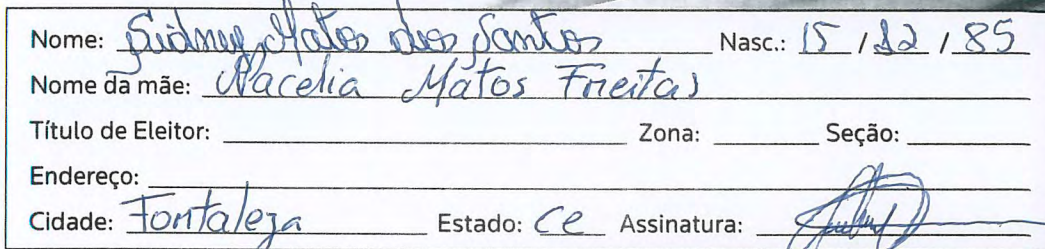 Nome: Sidney Matos dos Santos Nasc.: 15 / 12 / 85
Nome da mãe: Nacelia Matos Freitas
Título de Eleitor: Zona: Seção:
Endereço:
Cidade: Fortaleza Estado: Ce Assinatura: